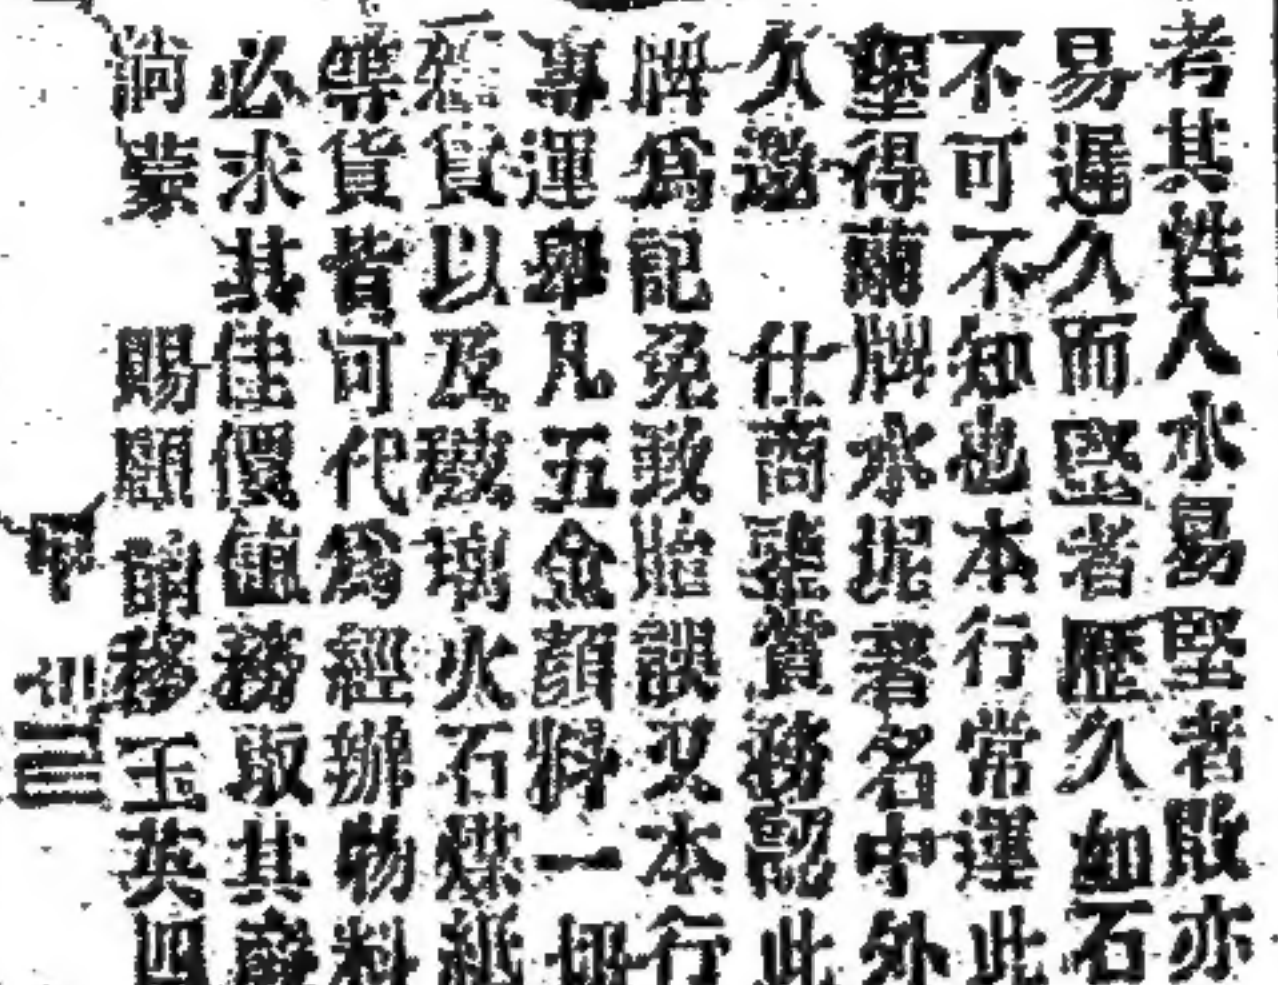 考其性入水易堅者毀亦
易遲久而堅者歷久如石
不可不知也本行常運此
堡得蘭牌水坭著名中外
久邀 仕商藥賞務認此
牌為記免致貽誤又本行
專運舉凡五金顏料一切
貨以及玻璃火石煤紙
等貨皆可代為經辦物料
必求其佳價值務取其廉
倘蒙 賜顧請移玉英四